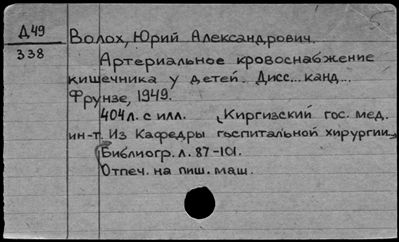 Д49
338
Волох, Юрий Александрович.
Артериальное кровоснабжение
кишечника у детей. Дисс... канд...
Фрунзе, 1949.
404 л. с илл. Киргизский гос. мед.
ин-т. Из Кафедры госпитальной хирургии.
Библиогр. л. 87-101.
Отпеч. на пиш. маш.